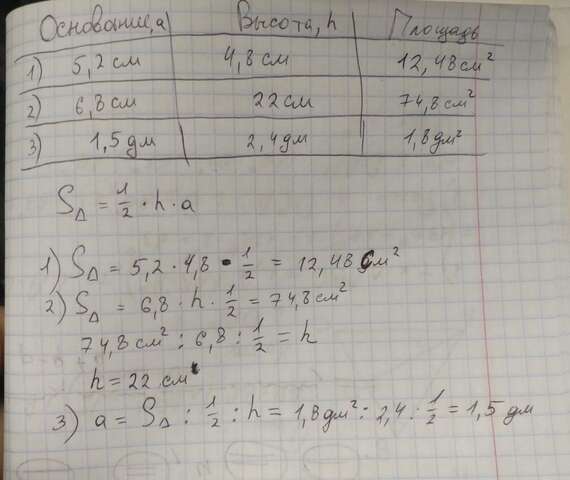 Основание, а Высота, h Площадь
1) 5,2 см 4,8 см 12,48 см²
2) 6,8 см 22 см 74,8 см²
3) 1,5 дм 2,4 дм 1,8 дм²
S△ = 1/2 · h · a
1) S△ = 5,2 · 4,8 · 1/2 = 12,48 см²
2) S△ = 6,8 · h · 1/2 = 74,8 см²
74,8 см² : 6,8 : 1/2 = h
h = 22 см
3) a = S△ : 1/2 : h = 1,8 дм² : 2,4 : 1/2 = 1,5 дм